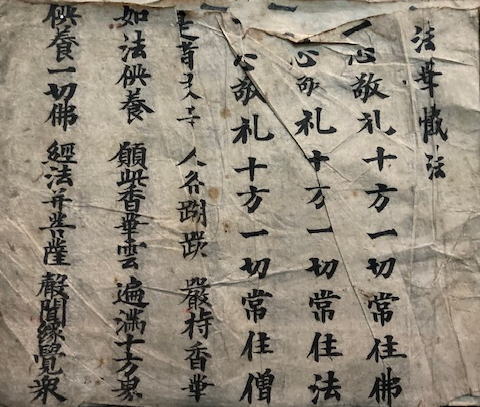 法華懺法
一心敬礼十方一切常住佛
心敬礼十方一切常住法
一心敬礼十方一切常住僧
人各跪 嚴持香華
如法供養 願此香華雲 遍満十方界
供養一切佛 經法并菩薩 聲聞縁覺衆